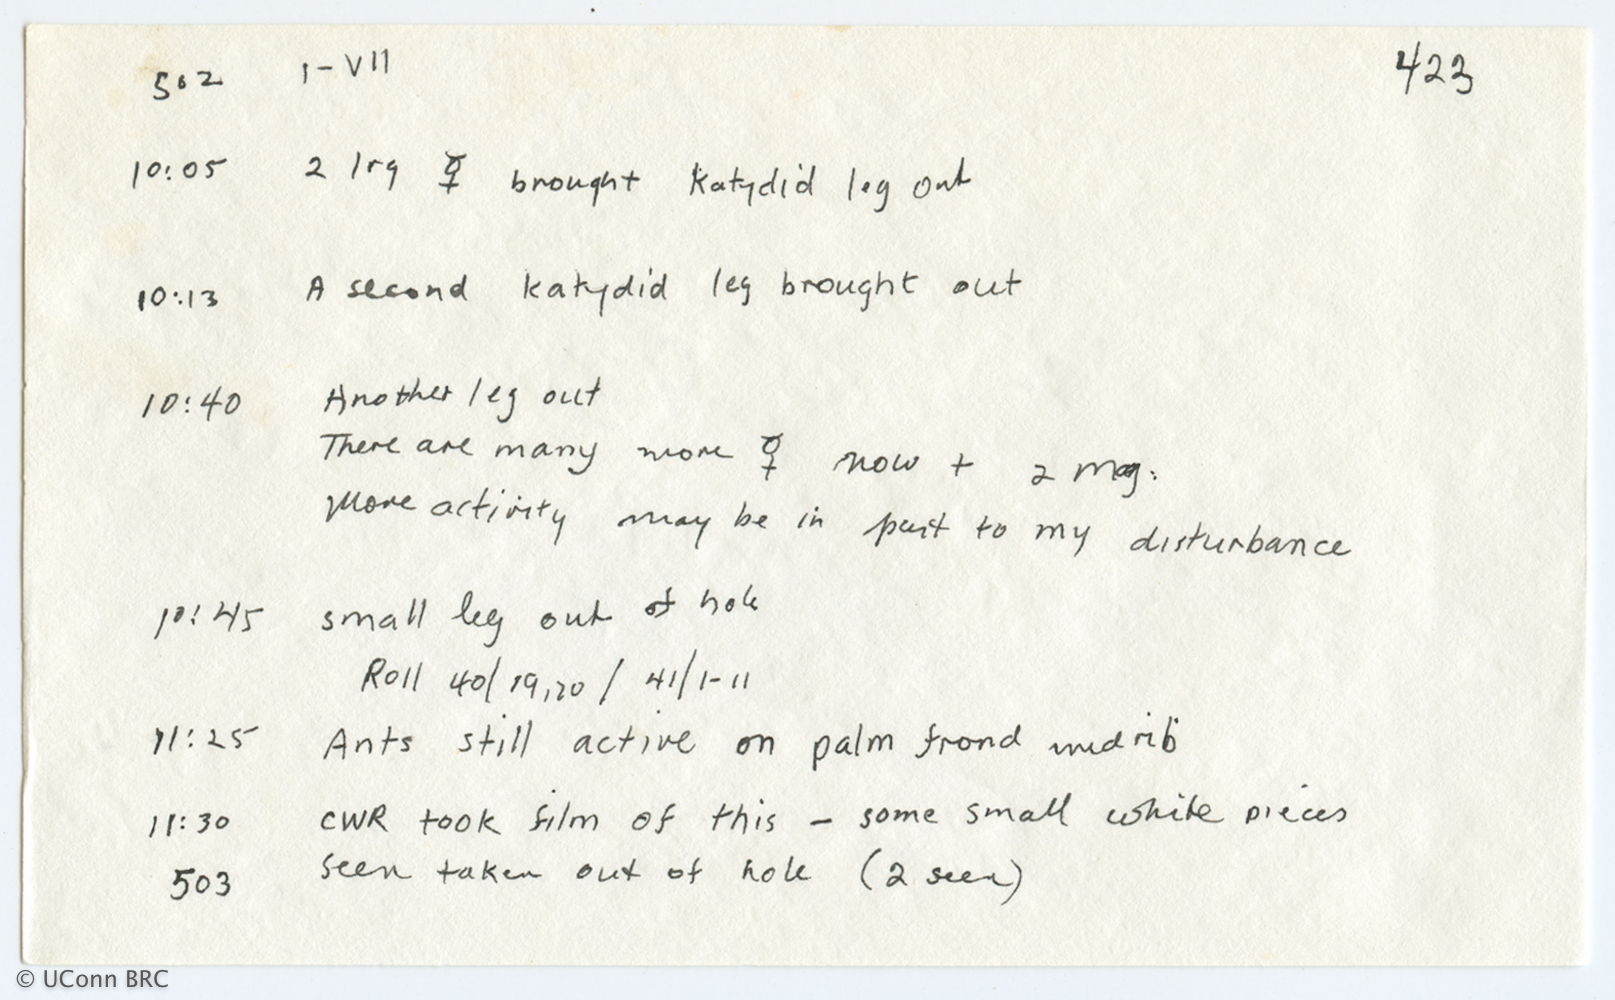 502 I-VII 423
10:05 2 lrg ☿ brought katydid leg out
10:13 A second katydid leg brought out
10:40 Another leg out
There are many more ☿ now + 2 maj.
More activity may be in part to my disturbance
10:45 small leg out of hole
Roll 40/19,20 / 41/1-11
11:25 Ants still active on palm frond midrib
11:30 CWR took film of this - some small white pieces
503 seen taken out of hole (2 seen)
© UConn BRC